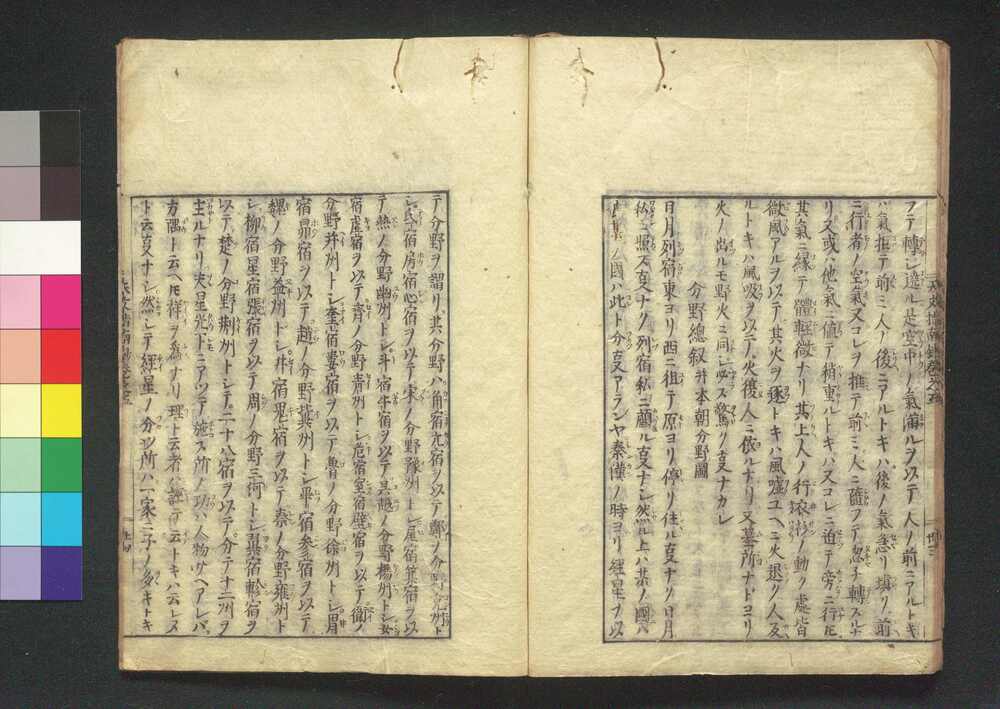 フテ轉シ遶ル是空中ノ氣滿ルヲ以テ人ノ前ニアルトキ
ハ氣推テ前ミ人ノ後ニアルトキハ後ノ氣急リ塡リ前
ニ行者ノ空氣又コレヲ推テ前ミ人ニ隨フテ忽チ轉スル
リ又或ハ他氣ニ値テ稍重ルトキハ又コレニ迫テ旁ニ行ㇳ
其氣ニ縁テ體輕微ナリ其上人ノ行衣衫ノ動ク處皆
微風アルヲ以テ其火ヲ逐トキハ風噓ユヘニ火退ク人及
ルトキハ風吸ヲ以テノ火復人ニ依ルナリ又墓所ナドヨリ
火ノ出ルモ野火ニ同シ必ス驚ク亥ナカレ
分野總叙并本朝分野圖
日月列宿東ヨリ西ニ徂テ原ヨリ停リノ住ル亥ナリ日月
私ニ照ス亥ナク列宿私ニ蘭ル亥ナシ然ル上ハ某ノ國ハ
此ト分亥アランヤ秦漢ノ時ヨリ經星ヲ以
テ分野ヲ謂リ其分野ハ角宿亢宿ヲ以テ鄭ノ分野兗州ト
シ氐宿房宿心宿ヲ以テ宋ノ分野豫州トシ尾宿箕宿ヲ以
テ燕ノ分野幽州トシ斗宿牛宿ヲ以テ呉越ノ分野楊州トシ女
宿虚宿ヲ以テ齊ノ分野青州トシ危宿室宿壁宿ヲ以テ衛ノ
分野并州トシ奎宿婁宿ヲ以テ魯ノ分野徐州トシ胃
宿昴宿ヲ以テ趙ノ分野冀州トシ畢宿參宿ヲ以テ
魏ノ分野益州トシ井宿鬼宿ヲ以テ秦ノ分野雍州ト
シ柳宿星宿張宿ヲ以テ周ノ分野三河トシ翼宿軫宿ヲ
以テ楚ノ分野荊州トシテ二十八宿ヲ以テ分テ十二州ヲ
主ルナリ夫星光下ニアツテ施ス所ノ功ハ人物サヘアレバ
方隅ト云ヘㇳ祥ヲ爲ナリ理ト云者ハ云トキハ云レヌ
ト云亥ナシ然シテ經星ノ分ツ所ハ一家三子ノ多キトキ